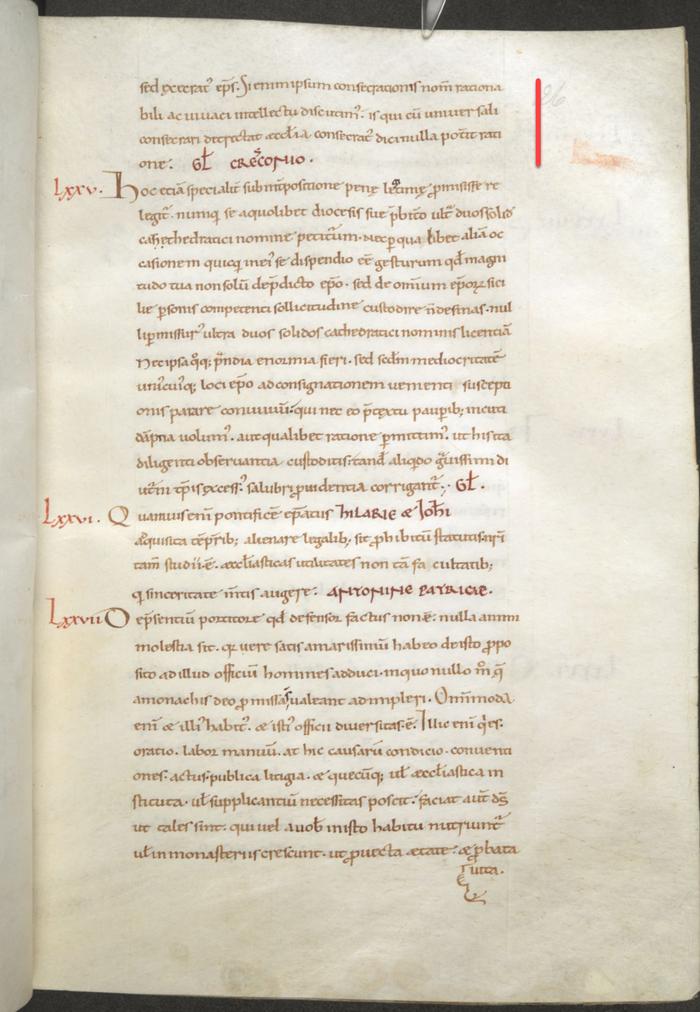 sed execrat̄ ep̄s. Si enim ipsum consecrationis nom̄ rationa
bili ac vivaci intellectu discutim᷒. is qui cū univer sali
consecrari detrectat ęccl̄ia consecrat᷒ dici nulla potīt rati
one. GL̄ CRESCONIO.
LXXV. Hoc etiā specialit̄ sub int̄positione penę p̄misisse re
legit᷒. numq̄ se a quolibet diocesis suę p̄bīto ult̄ duos solid̄
cathedratici nomine petiturum. Nec per qua libet aliā oc
casionem quicq̄ inei se dispendio eē gesturum qd̄ magni
tudo tua non solū de p̄dicto ep̄o. sed de omnium ep̄orꝝ sici
lie p̄sonis competenti sollicitudine custodire n̄ desinas. nul
li p̄missur᷒ ultra duos solidos cathedratici nominis licentiā
Nec ipsa q̄q; p̄ndia enormia fieri. sed scd̄m mediocritatē
uni᷒cui᷒q; loci ep̄o ad consignationem venienti suscepti
onis parare conviviū. qui nec eo p̄textu paup̄ib; incuti
dāpna volum᷒. aut qualibet ratione p̄mittim᷒. ut his ita
diligenti observantia custoditis: tand̄ aliqdo gͣvissimi di
ut̄ni tp̄is excess᷒ salubri p̄videntia corrigant̄. GL̄.
LXXVI. Quamvis enī pontificē ep̄atus HILARIE & IOH̄I
adquisita tēp̄rib; alienare legalib; sit p̄hibitū statutis. nr̄i
tam̄ studii. ē. ęccl̄iasticas utilitates non tā fa cultatib;
q̄ sinceritate mīntis augere. ANTONINE PATRICIE.
LXXVII De p̄sentiū portitore qd̄ defensor factus non ē. nulla animi
molestia sit. qr vere satis amarissimū habeo de isto p̄po
sito ad illud officiū homines adduci. in quo nullo m̄ q̄
a monachis deo p̄missa s᷒ valeant adimpleri. Omīmoda
enī & illi᷒ habit᷒. & isti᷒ officii diversitas. ē. Illic enī q̄es.
oratio. labor manuū. at hic causarū condicio. conventi
ones. actus. publica litigia. & quecūq; vl̄ ęccl̄iastica in
stituta. vl̄ supplicantiū necessitas poscit. faciat aut̄ dś
ut tales sint. qui vel a vob̄ in isto habitu nutriunt̄
vl̄ in monasteriis crescunt. ut p̄vecta ętate. & p̄bata
vita.